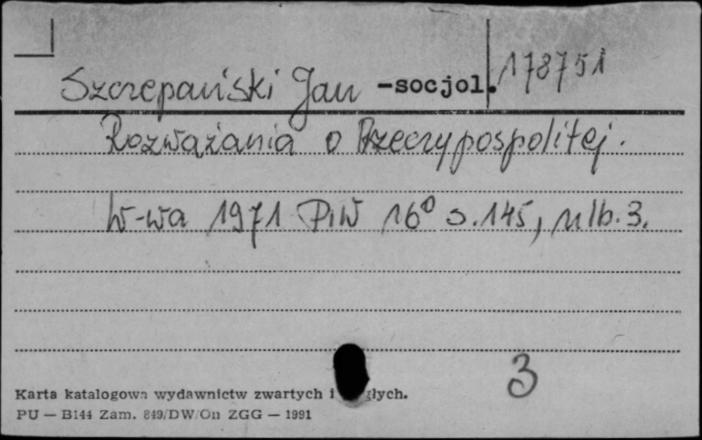 Szczepański Jan -socjol. 178751
Rozważania o Rzeczypospolitej.
W-wa 1971 PIW 16⁰ s. 145, nlb. 3.
3
Karta katalogowa wydawnictw zwartych i
PU — B144 Zam. 849/DW/On ZGG — 1991